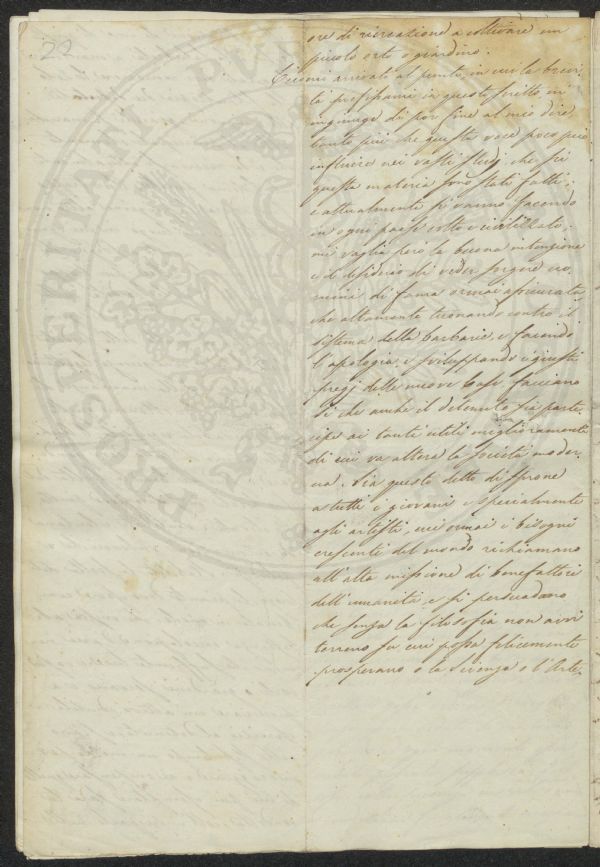 22
ore di ricreazione a coltivare un
piccolo orto o giardino.
Eccomi arrivato al punto, in cui la brevi-
tà prefissami in questo scritto m'
ingiunge di por fine al mio dire
tanto più che questa voce poco può
influire nei vasti studj, che su
questa materia sono stati fatti,
e attualmente si vanno facendo
in ogni paese colto e civilizzato;
mi vaglia però la buona intenzione
e il desiderio di veder sorgere uo-
mini di fama ormai assicurata
che altamente tuonando contro il
sistema della barbarie, e facendo
l'apologia, e sviluppando i giusti
pregj delle nuove basi, facciano
sì che anche il detenuto sia parte-
cipe ai tanti utili miglioramenti
di cui va altera la società moder-
na. Sia questo detto di sprone
a tutti i giovani e specialmente
agli artisti, cui ormai i bisogni
crescenti del mondo richiamano
all'alta missione di benefattori
dell'umanità, e si persuadano
che senza la filosofia non avvi
terreno su cui possa felicemente
prosperano o la Scienza o l'Arte.
PROSPERITATI PVB